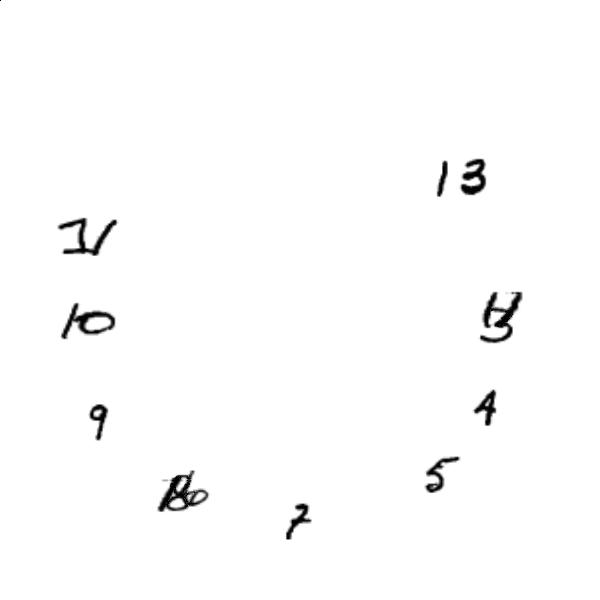 13
11
10
9
4
5
7